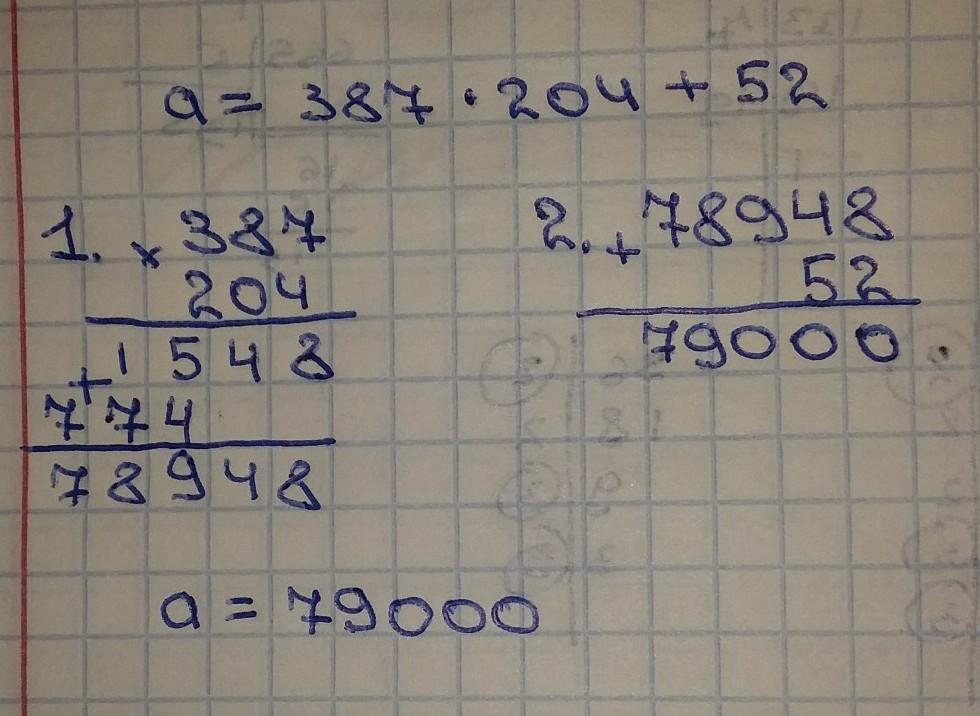 a = 387 · 204 + 52
1. × 387
204
+ 1548
774
78948
2. + 78948
52
79000
a = 79000